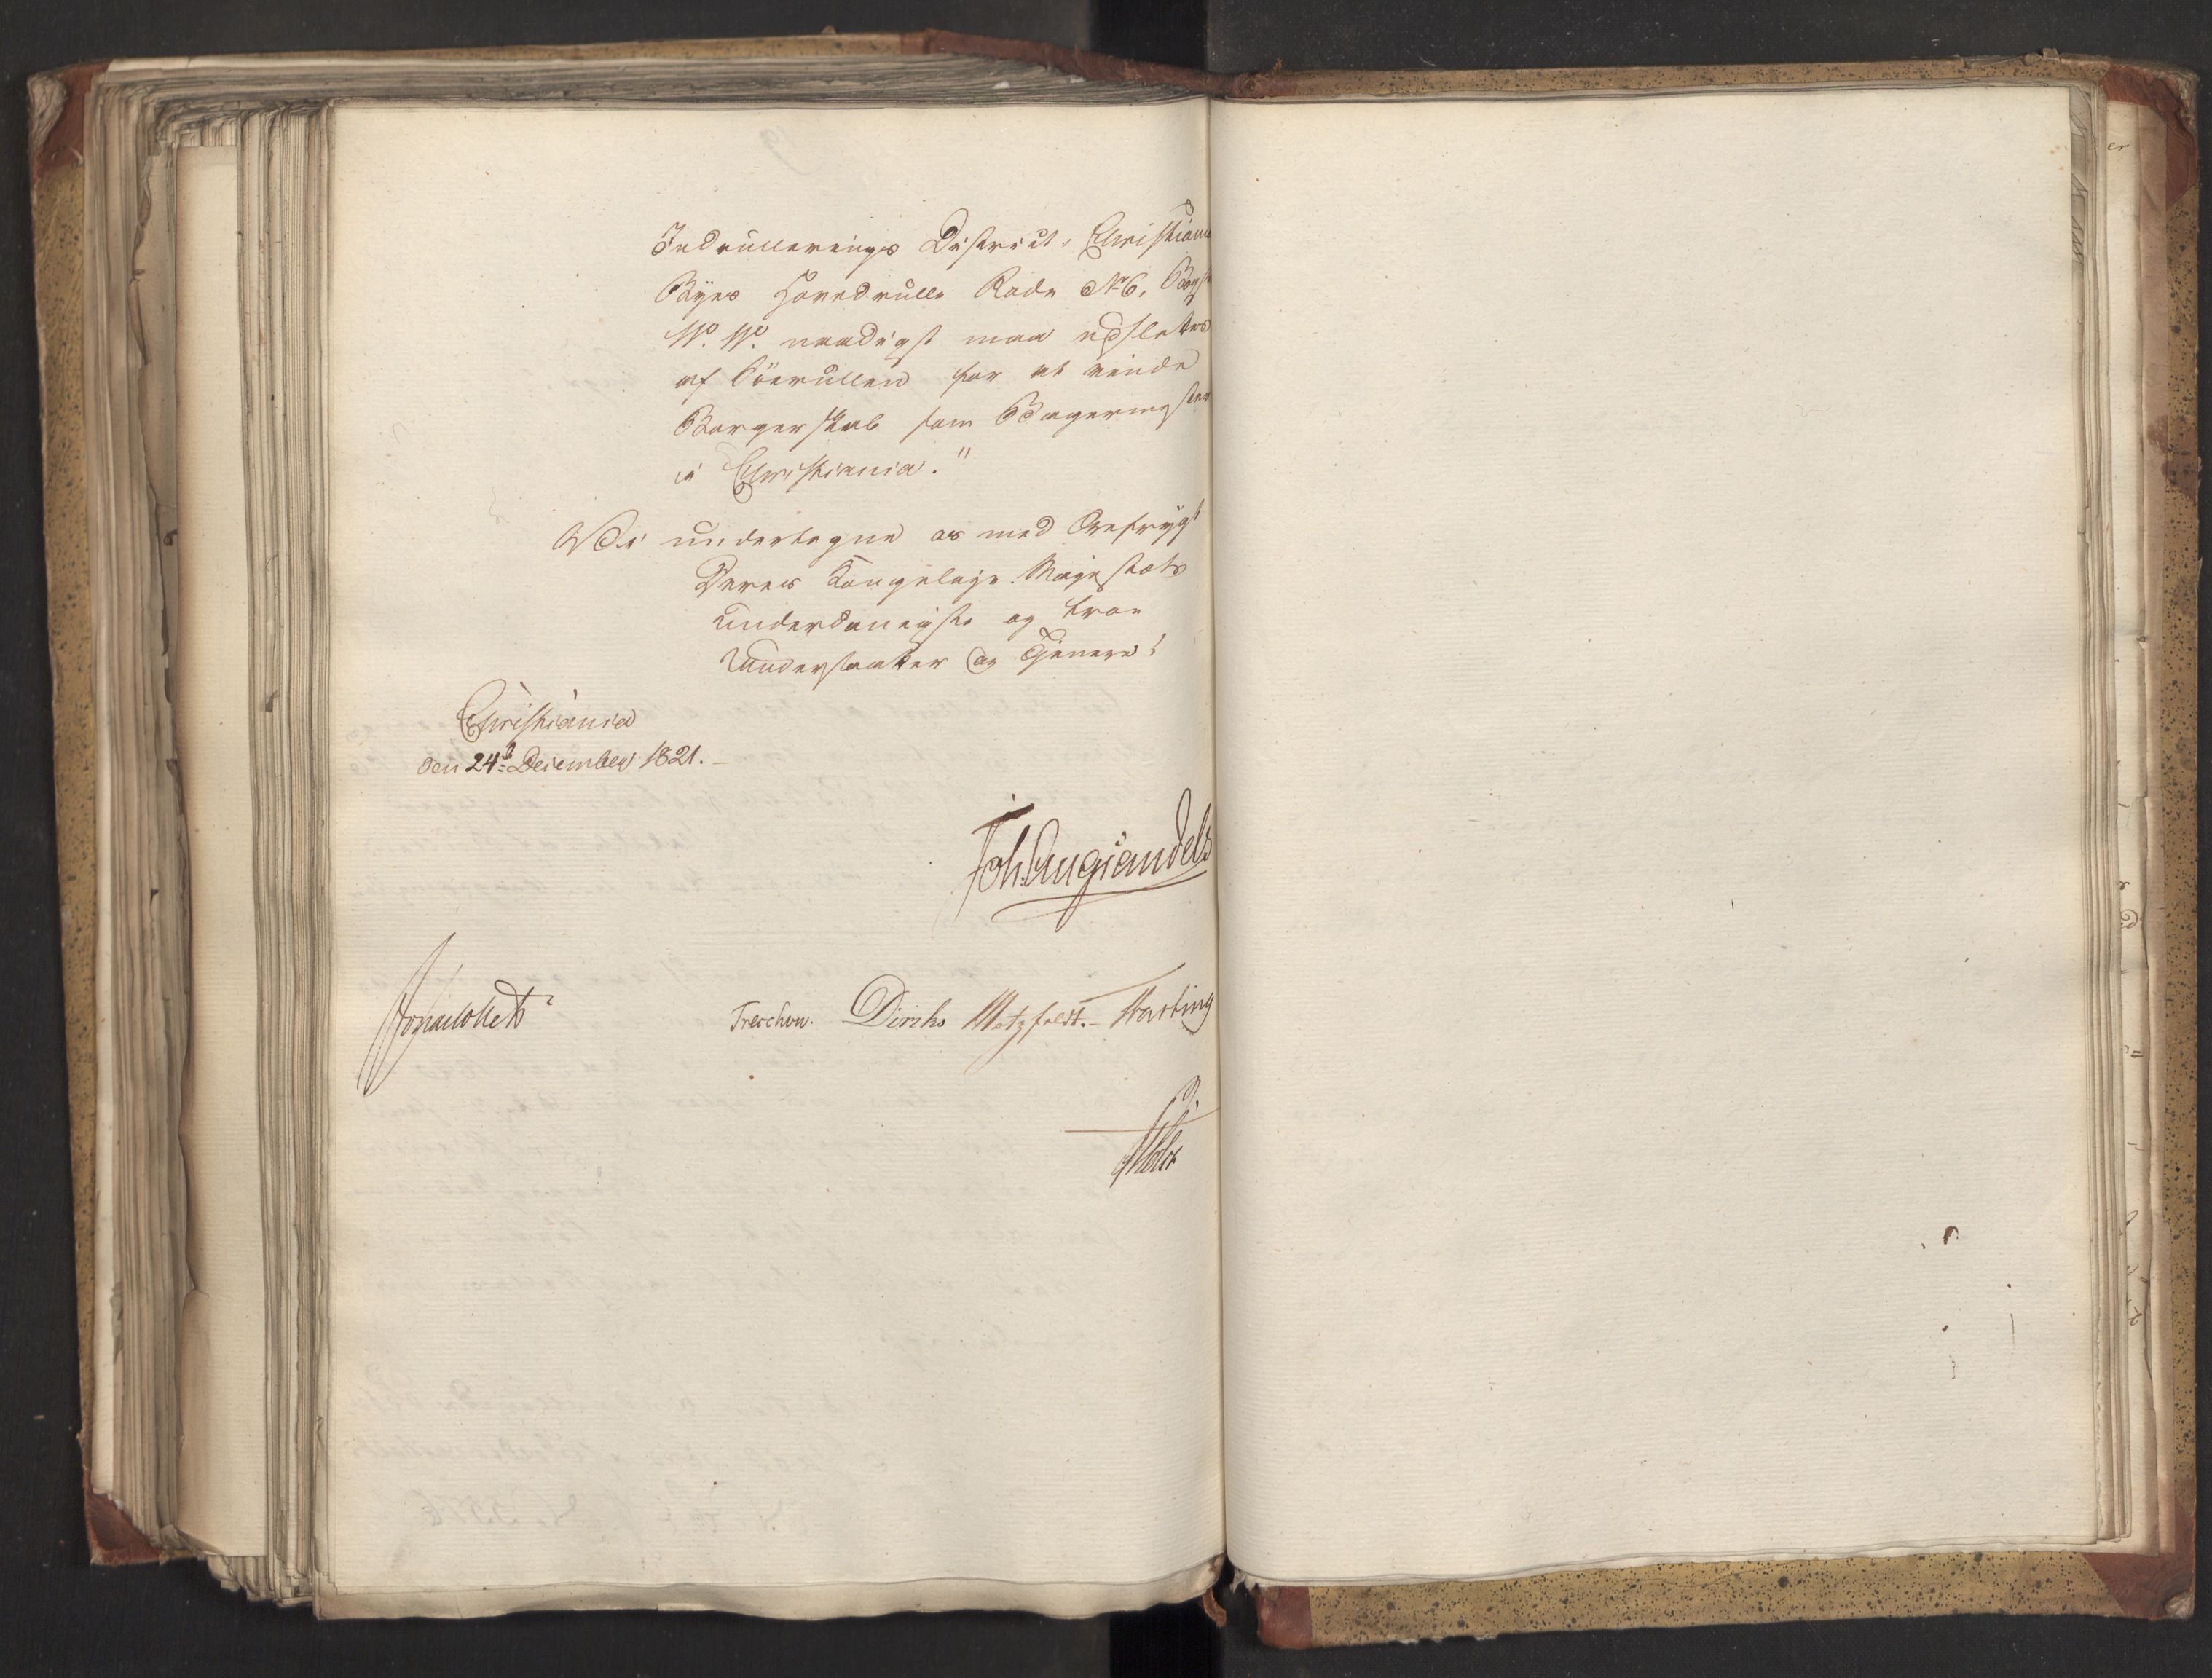 Indrullerings District, Christiania
Byes Hovedrulle Rode No 6, Bogst
W. W. naadigst maa udslettes
af Söerullen for at vinde
Borgerskab som Bagermester
i Christiania."
Vi undertegne os med Ærefrygt
Deres Kongelige Majestæts
underdanigste og troe
Undersaatter og Tjenere!
Christiania
den 24de December 1821.
Joh. Aug Sandels
Jonas Collett
Treschow. Diriks Motzfeldt. Hasting